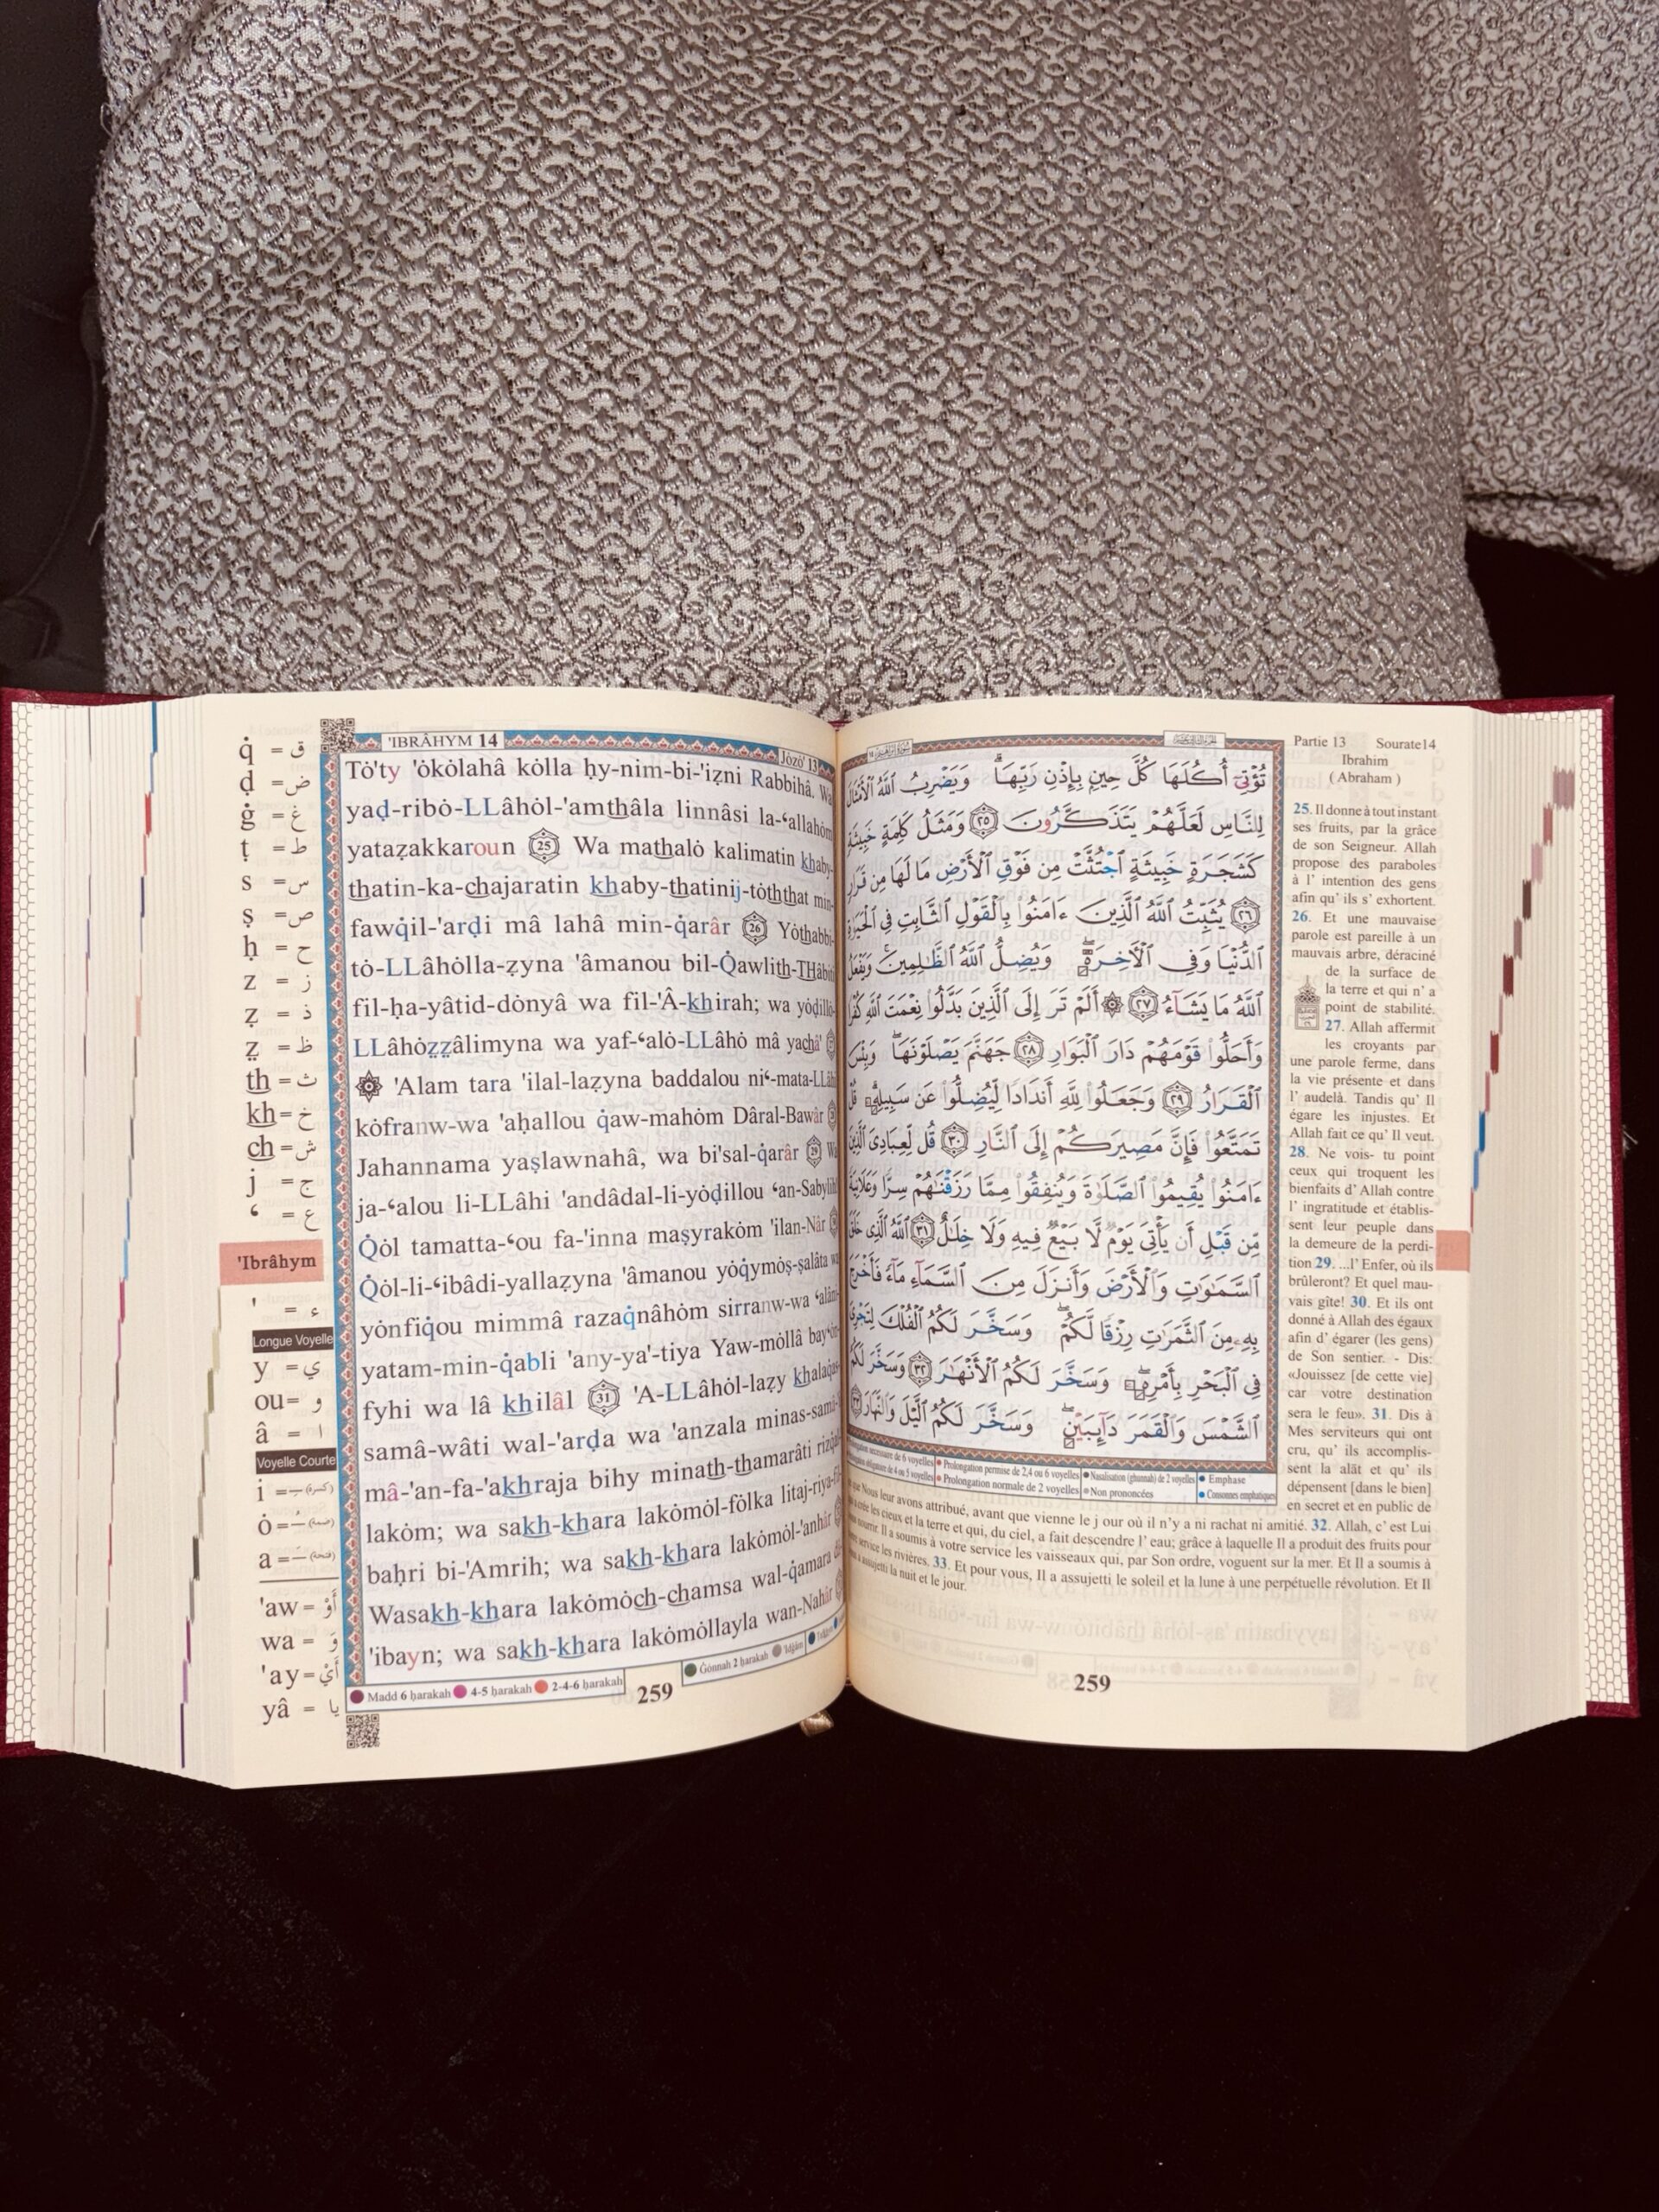 'IBRÂHYM 14
Jȯzȯ' 13
q̇ = ق
ḍ = ض
ġ = غ
ṭ = ط
s = س
ṣ = ص
ḥ = ح
z = ز
ẓ = ذ
th = ث
kh = خ
ch = ش
j = ج
ʻ = ع
'Ibrâhym
' = ء
Longue Voyelle
y = ي
ou = و
â = ا
Voyelle Courte
i =
ȯ =
a =
'aw = أَوْ
wa = وَ
'ay = أَيْ
yâ = يا
Tȯ'ty 'ȯkȯlahâ kȯlla ḥy-nim-bi-'iẓni Rabbihâ. Wa
yaḍ-ribȯ-LLâhȯl-'amthâla linnâsi la-ʻallahȯm
yataẓakkaroun 25 Wa mathalȯ kalimatin khaby-
thatin-ka-chajaratin khaby-thatinij-tȯththat min-
fawq̇il-'arḍi mâ lahâ min-q̇arâr 26 Yȯthabbi-
tȯ-LLâhȯlla-ẓyna 'âmanou bil-Q̇awlith-THâbiti
fil-ḥa-yâtid-dȯnyâ wa fil-'Â-khirah; wa yȯḍillȯ-
LLâhȯẓẓâlimyna wa yaf-ʻalȯ-LLâhȯ mâ yachâ'
'Alam tara 'ilal-laẓyna baddalou niʻ-mata-LLâhi
kȯfranw-wa 'aḥallou q̇aw-mahȯm Dâral-Bawâr
Jahannama yaṣlawnahâ, wa bi'sal-q̇arâr 29 Wa
ja-ʻalou li-LLâhi 'andâdal-li-yȯḍillou ʻan-Sabylih
Q̇ȯl tamatta-ʻou fa-'inna maṣyrakȯm 'ilan-Nâr
Q̇ȯl-li-ʻibâdi-yallaẓyna 'âmanou yȯq̇ymȯṣ-ṣalâta wa
yȯnfiq̇ou mimmâ razaq̇nâhȯm sirranw-wa ʻalâni-
yatam-min-q̇abli 'any-ya'-tiya Yaw-mȯllâ bayʻȯn-
fyhi wa lâ khilâl 31 'A-LLâhȯl-laẓy khalaq̇as-
samâ-wâti wal-'arḍa wa 'anzala minas-samâ-
mâ-'an-fa-'akhraja bihy minath-thamarâti rizq̇al-
lakȯm; wa sakh-khara lakȯmȯl-fȯlka litaj-riya-fil-
baḥri bi-'Amrih; wa sakh-khara lakȯmȯl-'anhâr
Wasakh-khara lakȯmȯch-chamsa wal-q̇amara dâ-
'ibayn; wa sakh-khara lakȯmȯllayla wan-Nahâr
Madd 6 ḥarakah 4-5 ḥarakah 2-4-6 ḥarakah
Ġȯnnah 2 ḥarakah
259
تُؤْتِىٓ أُكُلَهَا كُلَّ حِينٍۭ بِإِذْنِ رَبِّهَا ۗ وَيَضْرِبُ ٱللَّهُ ٱلْأَمْثَالَ
لِلنَّاسِ لَعَلَّهُمْ يَتَذَكَّرُونَ ٢٥ وَمَثَلُ كَلِمَةٍ خَبِيثَةٍ
كَشَجَرَةٍ خَبِيثَةٍ ٱجْتُثَّتْ مِن فَوْقِ ٱلْأَرْضِ مَا لَهَا مِن قَرَارٍ
٢٦ يُثَبِّتُ ٱللَّهُ ٱلَّذِينَ ءَامَنُوا۟ بِٱلْقَوْلِ ٱلثَّابِتِ فِى ٱلْحَيَوٰةِ
ٱلدُّنْيَا وَفِى ٱلْءَاخِرَةِ ۖ وَيُضِلُّ ٱللَّهُ ٱلظَّـٰلِمِينَ ۚ وَيَفْعَلُ
ٱللَّهُ مَا يَشَآءُ ٢٧ ۞ أَلَمْ تَرَ إِلَى ٱلَّذِينَ بَدَّلُوا۟ نِعْمَتَ ٱللَّهِ كُفْرًا
وَأَحَلُّوا۟ قَوْمَهُمْ دَارَ ٱلْبَوَارِ ٢٨ جَهَنَّمَ يَصْلَوْنَهَا ۖ وَبِئْسَ
ٱلْقَرَارُ ٢٩ وَجَعَلُوا۟ لِلَّهِ أَندَادًا لِّيُضِلُّوا۟ عَن سَبِيلِهِۦ ۗ قُلْ
تَمَتَّعُوا۟ فَإِنَّ مَصِيرَكُمْ إِلَى ٱلنَّارِ ٣٠ قُل لِّعِبَادِىَ ٱلَّذِينَ
ءَامَنُوا۟ يُقِيمُوا۟ ٱلصَّلَوٰةَ وَيُنفِقُوا۟ مِمَّا رَزَقْنَـٰهُمْ سِرًّا وَعَلَانِيَةً
مِّن قَبْلِ أَن يَأْتِىَ يَوْمٌ لَّا بَيْعٌ فِيهِ وَلَا خِلَـٰلٌ ٣١ ٱللَّهُ ٱلَّذِى خَلَقَ
ٱلسَّمَـٰوَٰتِ وَٱلْأَرْضَ وَأَنزَلَ مِنَ ٱلسَّمَآءِ مَآءً فَأَخْرَجَ
بِهِۦ مِنَ ٱلثَّمَرَٰتِ رِزْقًا لَّكُمْ ۖ وَسَخَّرَ لَكُمُ ٱلْفُلْكَ لِتَجْرِىَ
فِى ٱلْبَحْرِ بِأَمْرِهِۦ ۖ وَسَخَّرَ لَكُمُ ٱلْأَنْهَـٰرَ ٣٢ وَسَخَّرَ لَكُمُ
ٱلشَّمْسَ وَٱلْقَمَرَ دَآئِبَيْنِ ۖ وَسَخَّرَ لَكُمُ ٱلَّيْلَ وَٱلنَّهَارَ ٣٣
Partie 13 Sourate14
Ibrahim
( Abraham )
25. Il donne à tout instant
ses fruits, par la grâce
de son Seigneur. Allah
propose des paraboles
à l' intention des gens
afin qu' ils s' exhortent.
26. Et une mauvaise
parole est pareille à un
mauvais arbre, déraciné
de la surface de
la terre et qui n' a
point de stabilité.
27. Allah affermit
les croyants par
une parole ferme, dans
la vie présente et dans
l' audelà. Tandis qu' Il
égare les injustes. Et
Allah fait ce qu' Il veut.
28. Ne vois- tu point
ceux qui troquent les
bienfaits d' Allah contre
l' ingratitude et établis-
sent leur peuple dans
la demeure de la perdi-
tion 29. ...l' Enfer, où ils
brûleront? Et quel mau-
vais gîte! 30. Et ils ont
donné à Allah des égaux
afin d' égarer (les gens)
de Son sentier. - Dis:
«Jouissez [de cette vie]
car votre destination
sera le feu». 31. Dis à
Mes serviteurs qui ont
cru, qu' ils accomplis-
sent la alāt et qu' ils
dépensent [dans le bien]
en secret et en public de
que Nous leur avons attribué, avant que vienne le j our où il n'y a ni rachat ni amitié. 32. Allah, c' est Lui
a créé les cieux et la terre et qui, du ciel, a fait descendre l' eau; grâce à laquelle Il a produit des fruits pour
nourrir. Il a soumis à votre service les vaisseaux qui, par Son ordre, voguent sur la mer. Et Il a soumis à
service les rivières. 33. Et pour vous, Il a assujetti le soleil et la lune à une perpétuelle révolution. Et Il
a assujetti la nuit et le jour.
nécessaire de 6 voyelles Prolongation permise de 2,4 ou 6 voyelles Nasalisation (ghunnah) de 2 voyelles Emphase
obligatoire de 4 ou 5 voyelles Prolongation normale de 2 voyelles Non prononcées Consonnes emphatiques
259